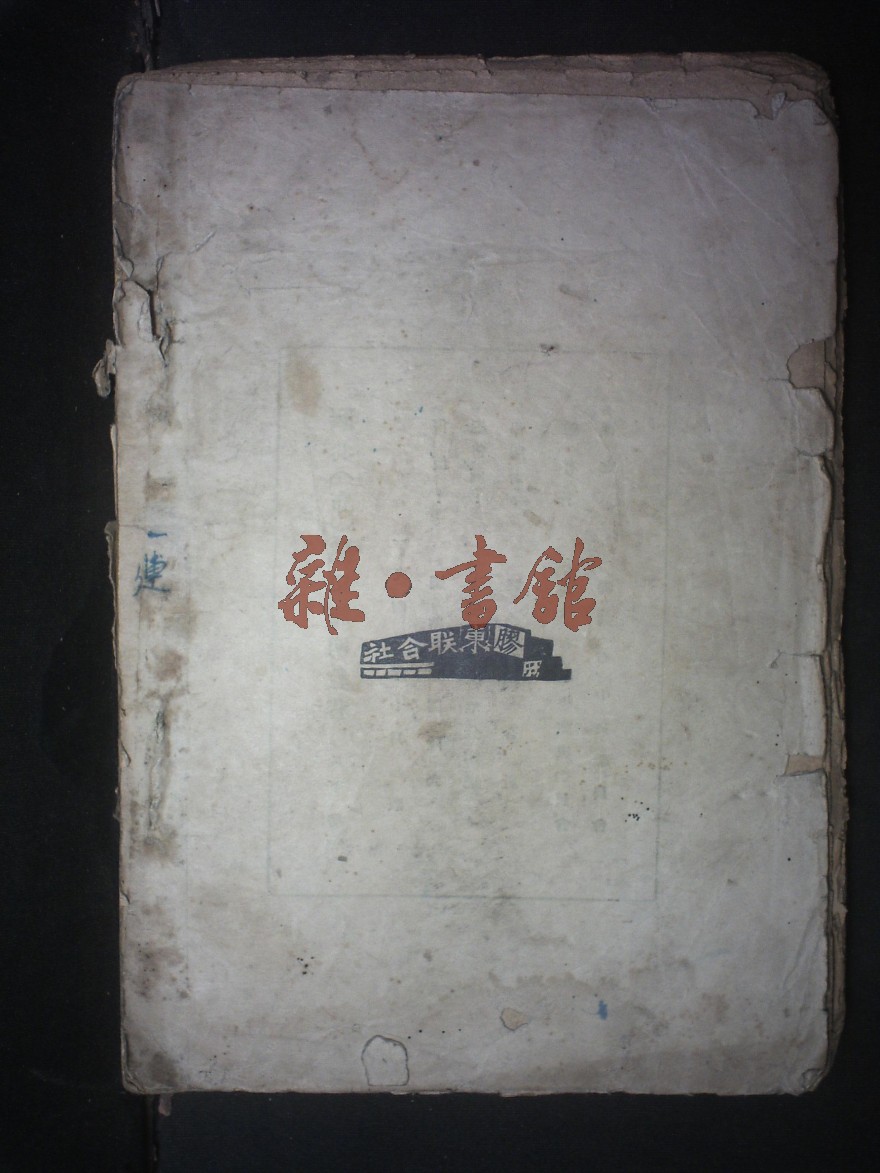 雜·書館
膠東联合社
一連